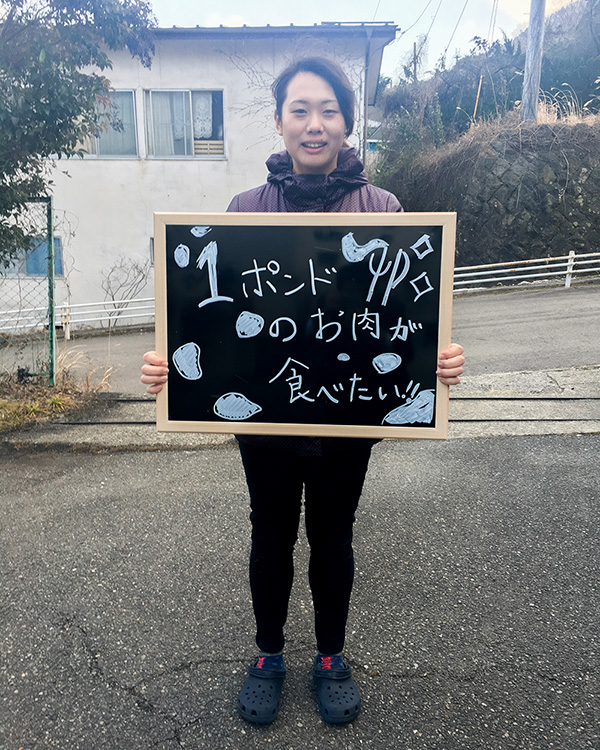 1ポンド
のお肉が
食べたい!!